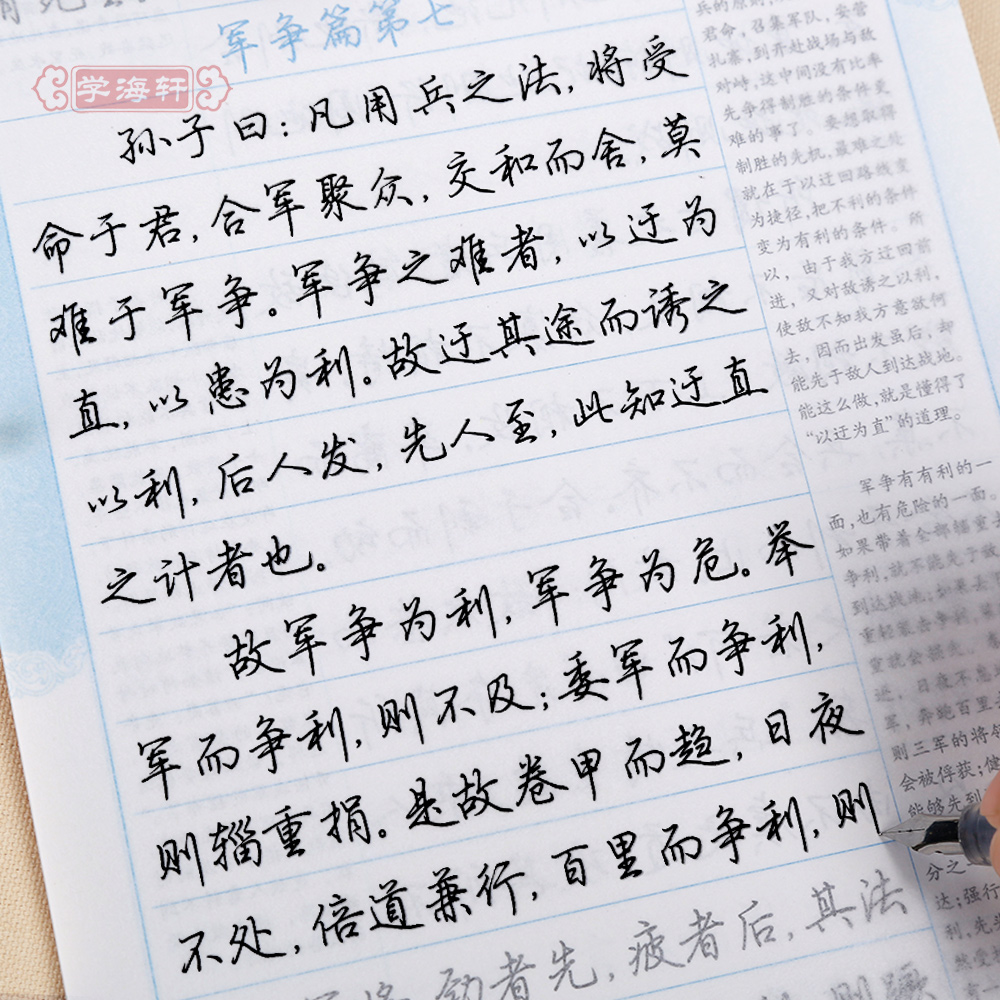 军争篇第七
学海轩
孙子曰：凡用兵之法，将受
命于君，合军聚众，交和而舍，莫
难于军争。军争之难者，以迂为
直，以患为利。故迂其途而诱之
以利，后人发，先人至，此知迂直
之计者也。
故军争为利，军争为危。举
军而争利，则不及；委军而争利，
则辎重捐。是故卷甲而趋，日夜
不处，倍道兼行，百里而争利，则
劲者先，疲者后，其法
兵的原则，
君命，召集军队，安营
扎寨，到开赴战场与敌
对峙，这中间没有比率
先争得制胜的条件更
难的事了。要想取得
制胜的先机，最难之处
就在于以迂回路线变
为捷径，把不利的条件
变为有利的条件。所
以，由于我方迂回前
进，又对敌诱之以利，
使敌不知我方意欲何
去，因而出发虽后，却
能先于敌人到达战地。
能这么做，就是懂得了
“以迂为直”的道理。
军争有有利的一
面，也有危险的一面。
如果带着全部辎重去
争利，就不能先于敌
到达战地；如果丢
重轻装去争利，
重就会损失。
进，日夜不息
军，奔跑百里
则三军的将领
会被俘获；健
能够先到
分之一
达；强行
利，先
然受